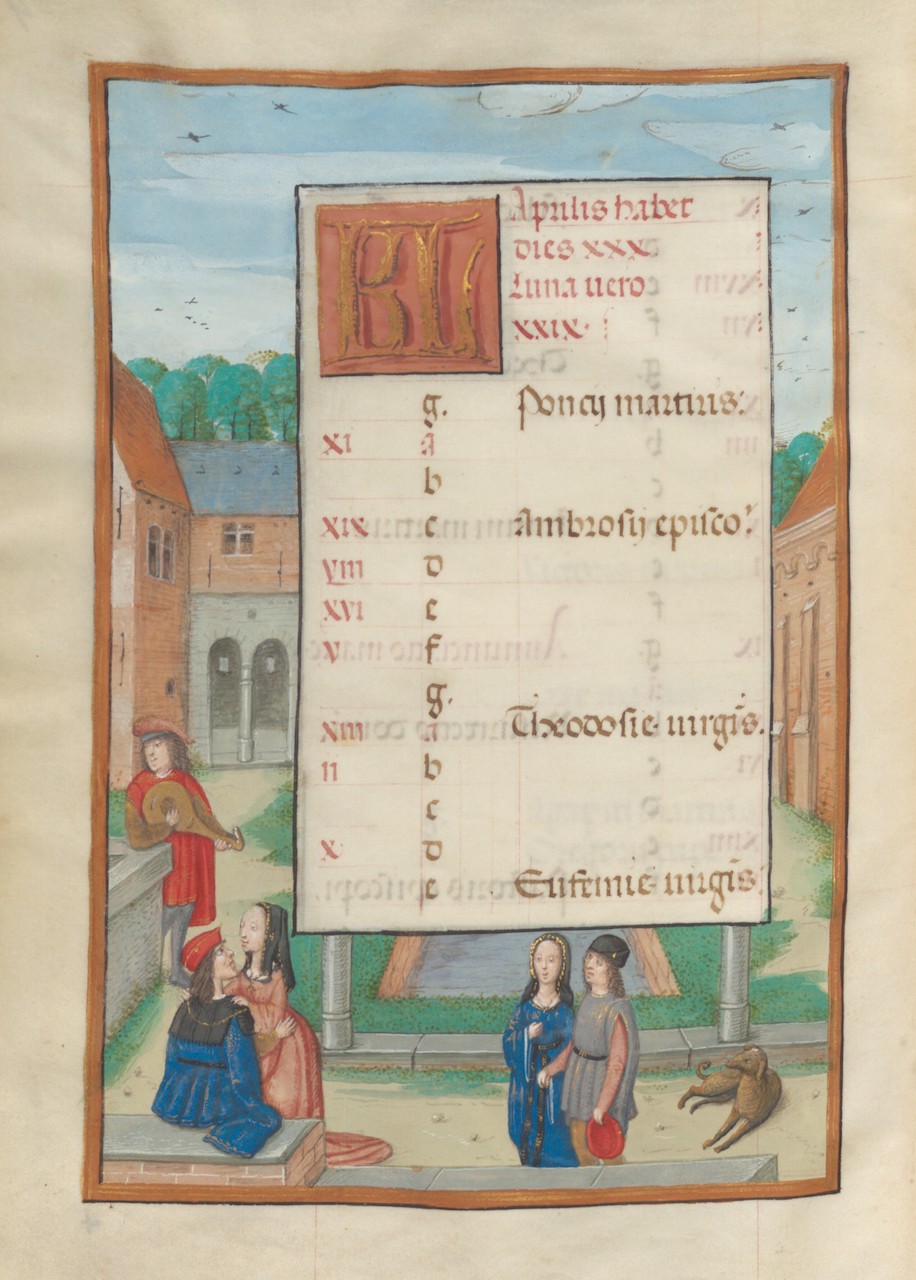 KL Aprilis habet
dies xxx.
Luna vero
xxix.
g. Poncij martiris:
xi a
b
xix c Ambrosij episco.
viii d
xvi e
v f
g.
xiii a Theodosie virgis.
ii b
c
x d
e Eufemie virgis.